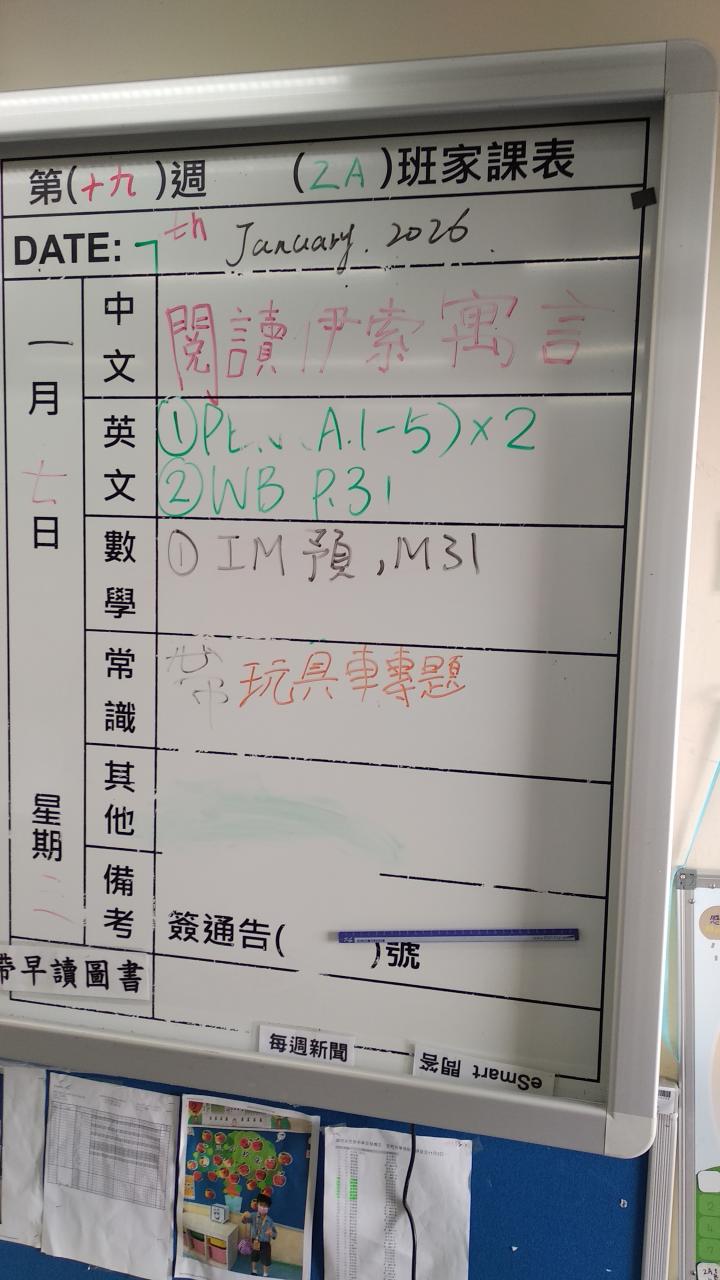 第(十九)週 (2A)班家課表
DATE: 7th January. 2026
一月七日
星期三
中文 閱讀伊索寓言
英文 ① A.1-5)×2
② WB P.31
數學 ① IM預,M31
常識 帶玩具車專題
其他
備考 簽通告( )號
帶早讀圖書
每週新聞
eSmart 問答